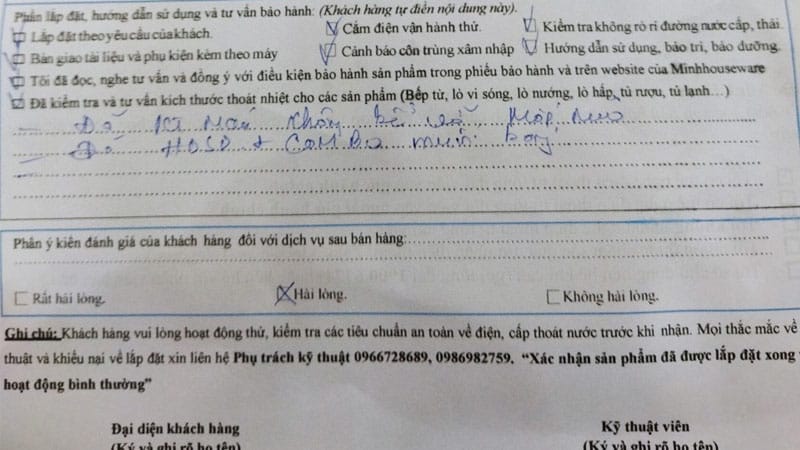 Phần lắp đặt, hướng dẫn sử dụng và tư vấn bảo hành: (Khách hàng tự điền nội dung này).
Lắp đặt theo yêu cầu của khách. Cắm điện vận hành thử. Kiểm tra không rò rỉ đường nước cấp, thải.
Bàn giao tài liệu và phụ kiện kèm theo máy Cảnh báo côn trùng xâm nhập Hướng dẫn sử dụng, bảo trì, bảo dưỡng.
Tôi đã đọc, nghe tư vấn và đồng ý với điều kiện bảo hành sản phẩm trong phiếu bảo hành và trên website của Minhhouseware
Đã kiểm tra và tư vấn kích thước thoát nhiệt cho các sản phẩm (Bếp từ, lò vi sóng, lò nướng, lò hấp, tủ rượu, tủ lạnh…)
Đã không
Đã HDSD +
Phần ý kiến đánh giá của khách hàng đối với dịch vụ sau bán hàng:
Rất hài lòng. Hài lòng. Không hài lòng.
Ghi chú: Khách hàng vui lòng hoạt động thử, kiểm tra các tiêu chuẩn an toàn về điện, cấp thoát nước trước khi nhận. Mọi thắc mắc về
thuật và khiếu nại về lắp đặt xin liên hệ Phụ trách kỹ thuật 0966728689, 0986982759. “Xác nhận sản phẩm đã được lắp đặt xong
hoạt động bình thường”
Đại diện khách hàng Kỹ thuật viên
(Ký và ghi rõ họ tên) (Ký và ghi rõ họ tên)